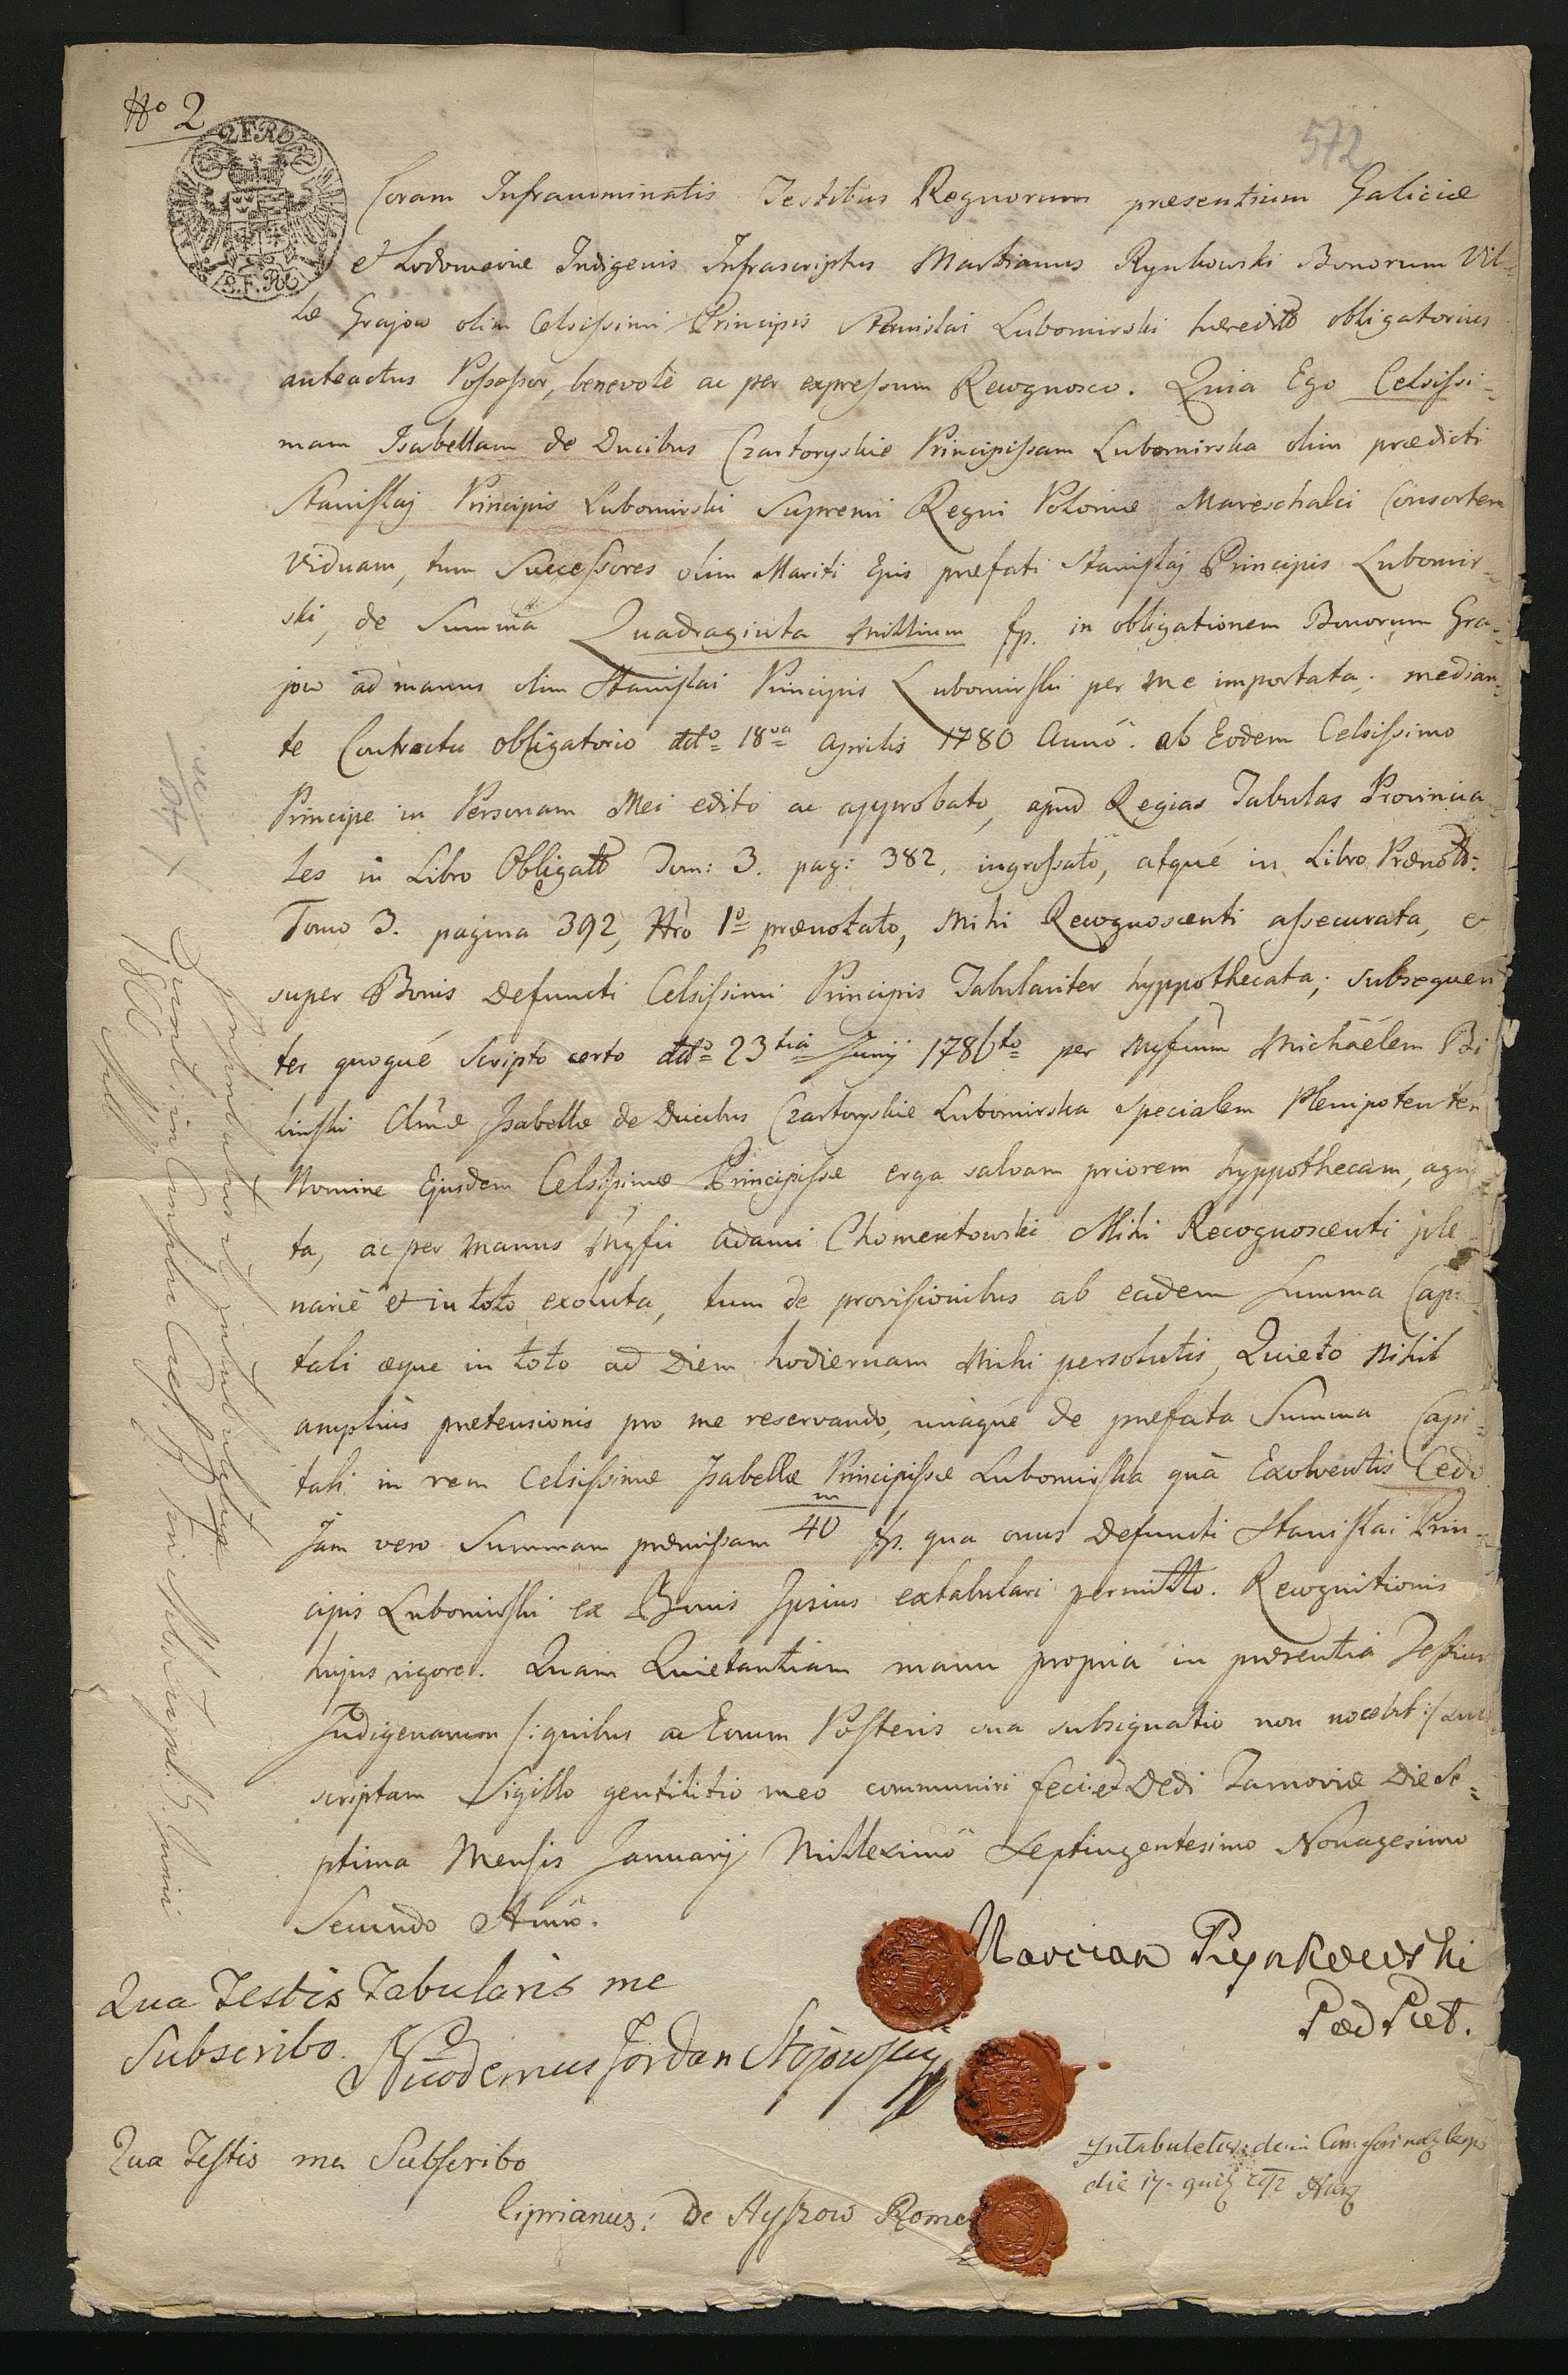 No 2
2 FR
3. F. R.
572
Coram Infranominatis Testibus Regnorum præsentium Galiciæ
& Lodomeriæ Indigenis Infrascriptus Martianus Rynkowski Bonorum Vil=
læ Grajow olim Celsissimi Principis Stanislai Lubomirski hæredit̃t̃ obligatorius
anteactus Possessor, benevolè ac per expressum Recognosco. Quia Ego Celsissi=
mam Isabellam de Ducibus Czartoryskie Principissam Lubomirska olim prædicti
Stanislaj Principis Lubomirski Supremi Regni Poloniæ Mareschalci Consortem
Viduam, tum Successores olim Mariti Ejus præfati Stanislaj Principis Lubomir=
ski, de Summa Quadraginta Millium fp. in obligationem Bonorum Gra=
jow ad manus olim Stanislai Principis Lubomirski per me importata; median=
te Contractu obligatorio ddto 18va Aprilis 1780 Anno. ab Eodem Celsissimo
Principe in Personam Mei edito ac approbato, apud Regias Tabulas Provincia=
les in Libro Obligatt Tom: 3. pag: 382, ingrossato, atqué in Libro Prænott:
Tomo 3. pagina 392, Nro 1o prænotato, Mihi Recognoscenti assecurata, &
super Bonis Defuncti Celsissimi Principis Tabulariter hyppothecata; subsequen
ter quoqué scripto certo ddto 23tia Junij 1786to per Mgfcum Michaëlem Bi
linski Clmæ Isabellæ de Ducibus Czartoryskie Lubomirska specialem Plenipotenten
Nomine Ejusdem Celsissimæ Principissæ erga salvam priorem hyppothecam, agni
ta, ac per manus Mgfci Adami Chomentowski Mihi Recognoscenti ple=
nariè & in toto exoluta, tum de provisionibus ab eadem Summa Capi=
tali æque in toto ad Diem hodiernam Mihi persolutis, Quieto nihil
amplius prætensionis pro me reservando, unàqué de præfata Summa Capi=
tali in rem Celsissimæ Isabellæ Principissæ Lubomirska quà Exolventis Cedo
Jam vero Summam præmissam 40 m fp. qua onus Defuncti Stanislai Prin=
cipis Lubomirski ex Bonis Ipsius extabulari permitto. Recognitionis
hujus vigore. Quam Quietantiam manu propria in præsentia Testium
Indigenarum /: quibus ac Eorum Posteris sua subsignatio non nocebit :/ sub
scriptam Sigillo gentilitio meo communiri feci & Dedi Tarnoviæ Die Se=
ptima Mensis Januarij Millesimo Septingentesimo Nonagesimo
Secundo Anno.
Marcian Rynkowski
Qua Testis Tabularis me
Subscribo. Nicodemus Jordan Stojowski
Qua Testis me Subscribo
Ciprianus: de